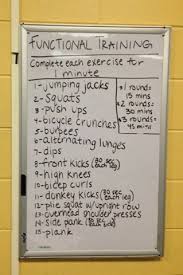 FUNCTIONAL TRAINING
Complete each exercise for
1 minute
1-jumping jacks
2-squats
3-push ups
4-bicycle crunches
5-burpees
6-alternating lunges
7-dips
8-front kicks (30 sec each leg)
9-high knees
10-bicep curls
11-donkey kicks (30 sec each leg)
12-plie squat w/upright row
13-overhead shoulder presses
14-side plank (30 sec
15-plank
*1 round=
15 mins
*2 rounds=
30 mins
*3 rounds=
45 mins